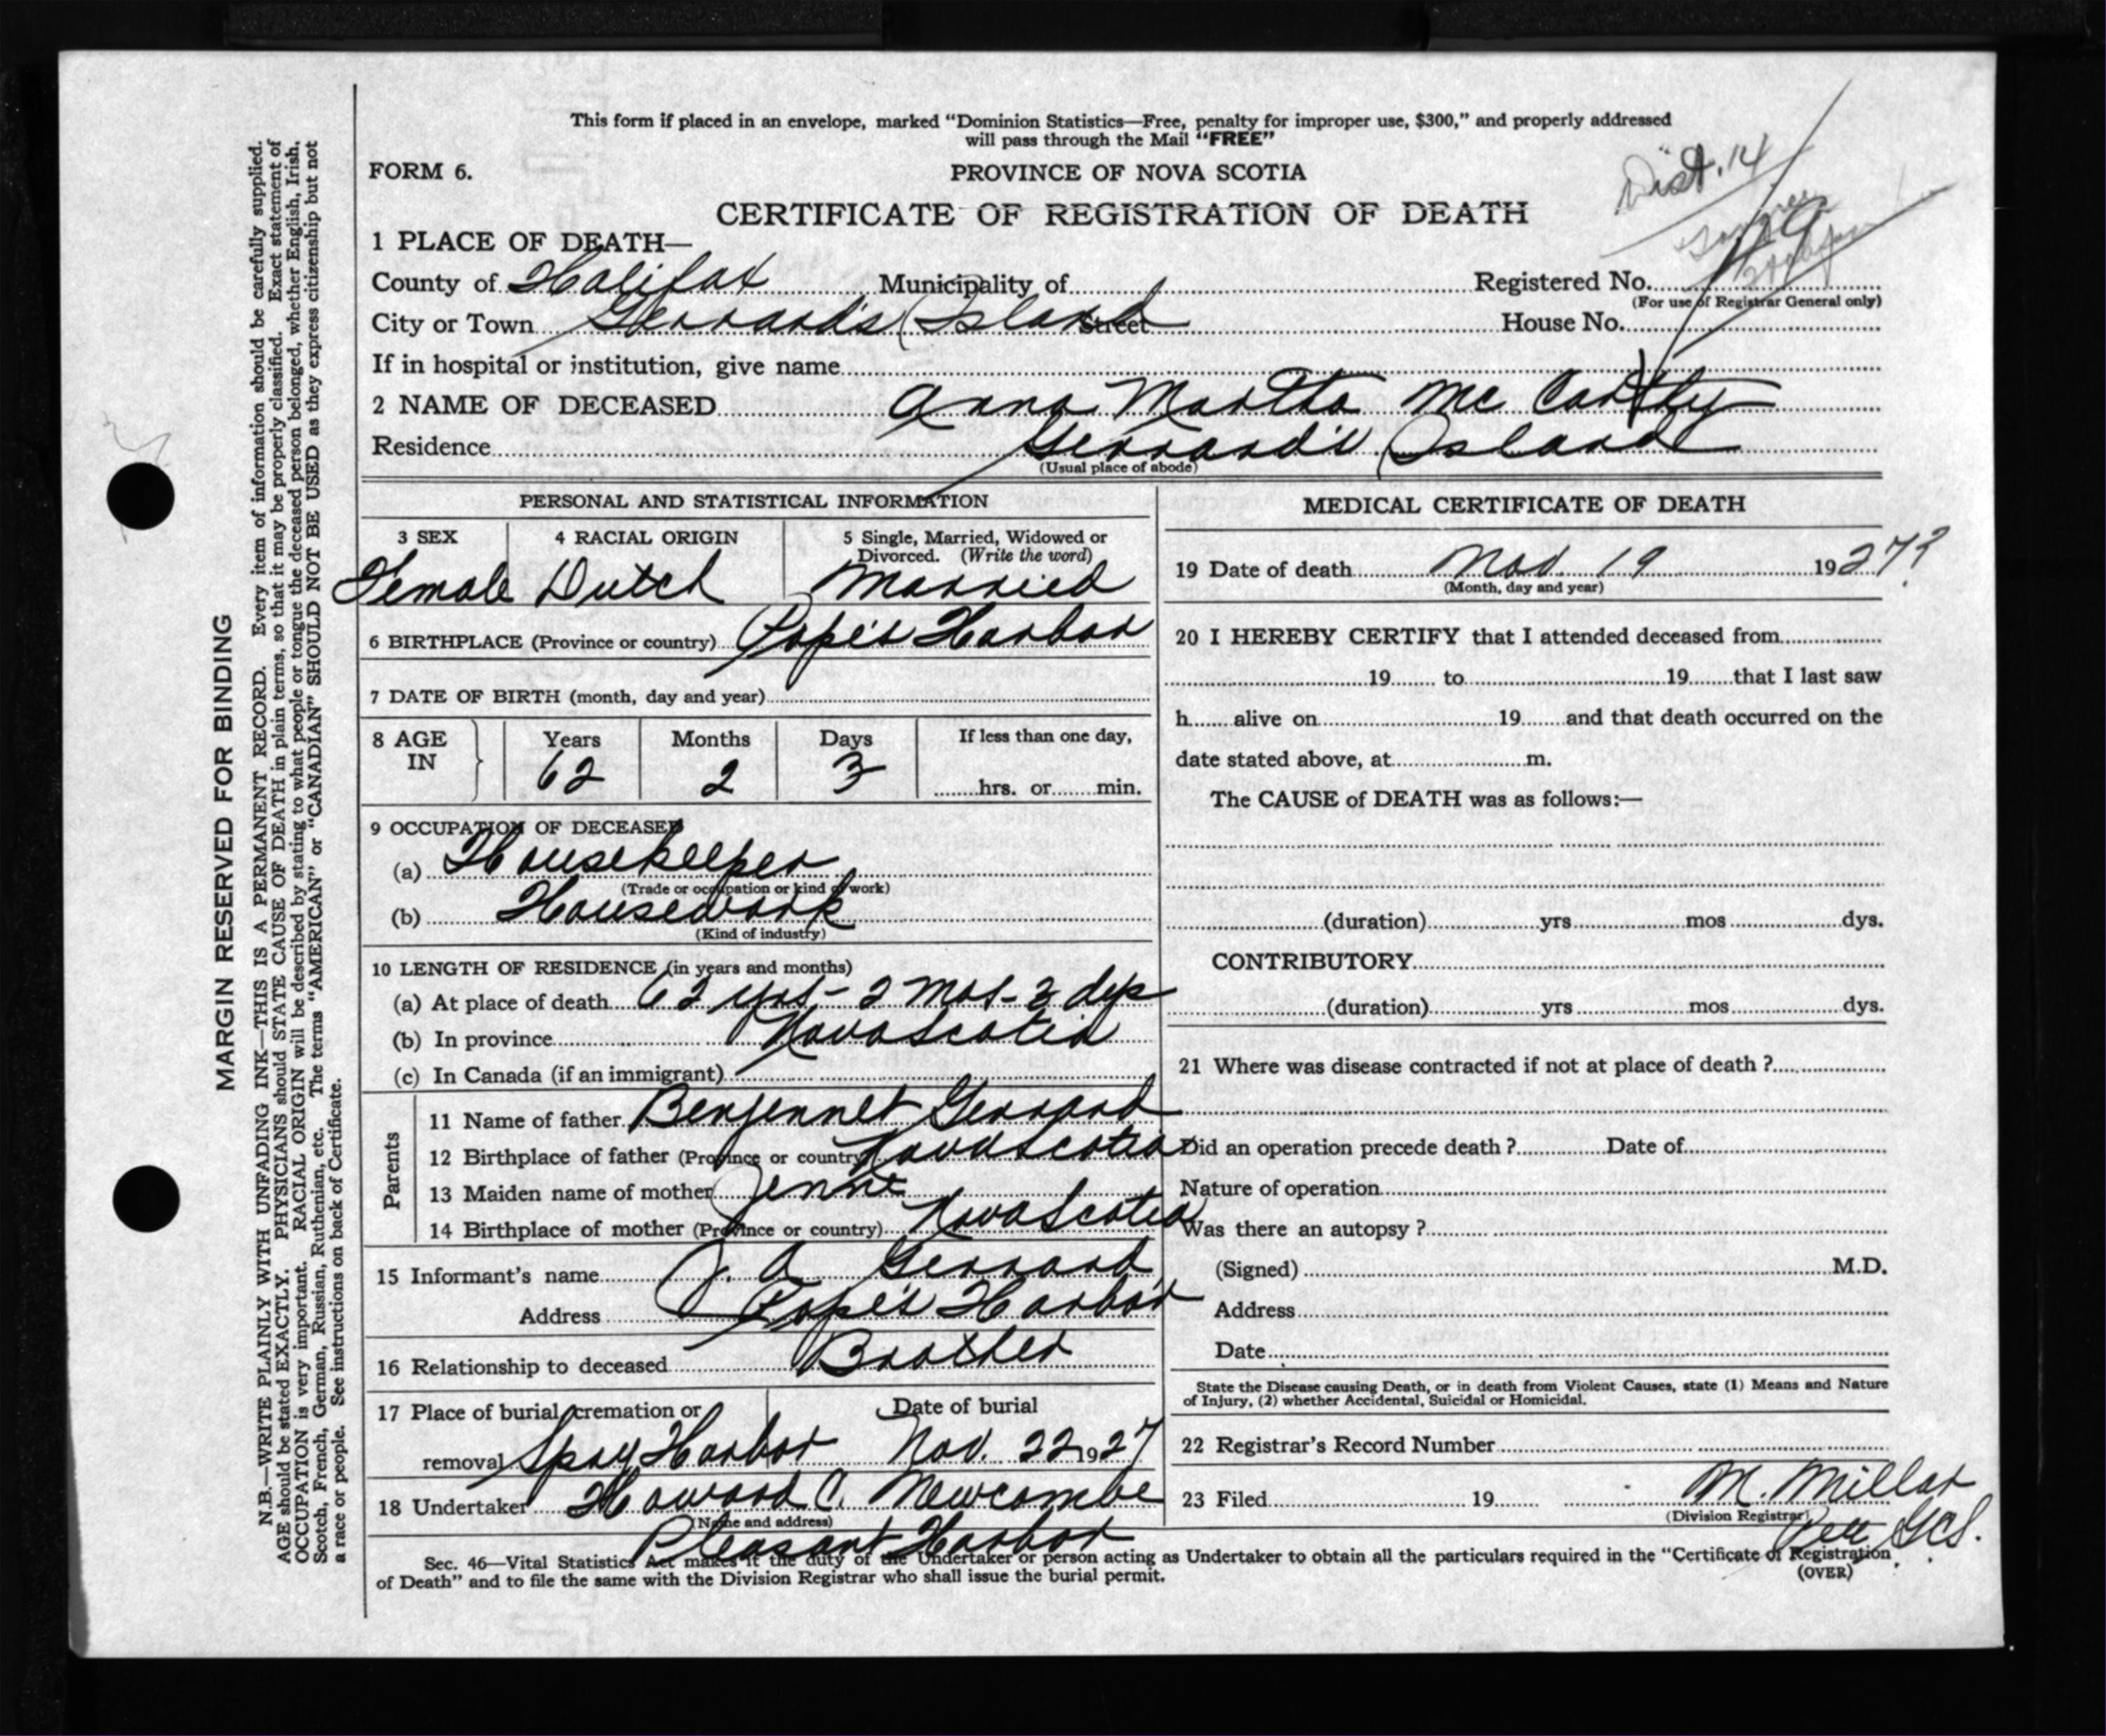 This form if placed in an envelope, marked "Dominion Statistics—Free, penalty for improper use, $300," and properly addressed
will pass through the Mail "FREE"
FORM 6.
PROVINCE OF NOVA SCOTIA
Dist. 14
CERTIFICATE OF REGISTRATION OF DEATH
1 PLACE OF DEATH—
County of Halifax Municipality of Registered No.
(For use of Registrar General only)
City or Town Gerrard's Island Street House No.
If in hospital or institution, give name
2 NAME OF DECEASED Anna Martha McCarthy
Residence Gerrard's Island
(Usual place of abode)
PERSONAL AND STATISTICAL INFORMATION
3 SEX 4 RACIAL ORIGIN 5 Single, Married, Widowed or
Divorced. (Write the word)
Female Dutch Married
6 BIRTHPLACE (Province or country) Pope's Harbor
7 DATE OF BIRTH (month, day and year)
8 AGE Years Months Days If less than one day,
IN 62 2 3 hrs. or min.
9 OCCUPATION OF DECEASED
(a) Housekeeper
(Trade or occupation or kind of work)
(b) Housework
(Kind of industry)
10 LENGTH OF RESIDENCE (in years and months)
(a) At place of death 62 yrs - 2 mos - 3 dys
(b) In province Nova Scotia
(c) In Canada (if an immigrant)
Parents
11 Name of father Benjennet Gerrard
12 Birthplace of father (Province or country) Nova Scotia
13 Maiden name of mother Jennie
14 Birthplace of mother (Province or country) Nova Scotia
15 Informant's name J. A Gerrard
Address Pope's Harbor
16 Relationship to deceased Brother
17 Place of burial, cremation or Date of burial
removal Spry Harbor Nov. 22 1927
18 Undertaker Howard C. Newcombe
(Name and address)
Pleasant Harbor
MEDICAL CERTIFICATE OF DEATH
19 Date of death Nov. 19 1927?
(Month, day and year)
20 I HEREBY CERTIFY that I attended deceased from
19 to 19 that I last saw
h alive on 19 and that death occurred on the
date stated above, at m.
The CAUSE of DEATH was as follows:—
(duration) yrs mos dys.
CONTRIBUTORY
(duration) yrs mos dys.
21 Where was disease contracted if not at place of death ?
Did an operation precede death ? Date of
Nature of operation
Was there an autopsy ?
(Signed) M.D.
Address
Date
State the Disease causing Death, or in death from Violent Causes, state (1) Means and Nature
of Injury, (2) whether Accidental, Suicidal or Homicidal.
22 Registrar's Record Number
23 Filed 19 M. Millar
(Division Registrar)
Per GCS.
Sec. 46—Vital Statistics Act makes it the duty of the Undertaker or person acting as Undertaker to obtain all the particulars required in the "Certificate of Registration
of Death" and to file the same with the Division Registrar who shall issue the burial permit.
(OVER)
MARGIN RESERVED FOR BINDING
N.B.—WRITE PLAINLY WITH UNFADING INK—THIS IS A PERMANENT RECORD. Every item of information should be carefully supplied.
AGE should be stated EXACTLY. PHYSICIANS should STATE CAUSE OF DEATH in plain terms, so that it may be properly classified. Exact statement of
OCCUPATION is very important. RACIAL ORIGIN will be described by stating to what people or tongue the deceased person belonged, whether English, Irish,
Scotch, French, German, Russian, Ruthenian, etc. The terms "AMERICAN" or "CANADIAN" SHOULD NOT BE USED as they express citizenship but not
a race or people. See instructions on back of Certificate.